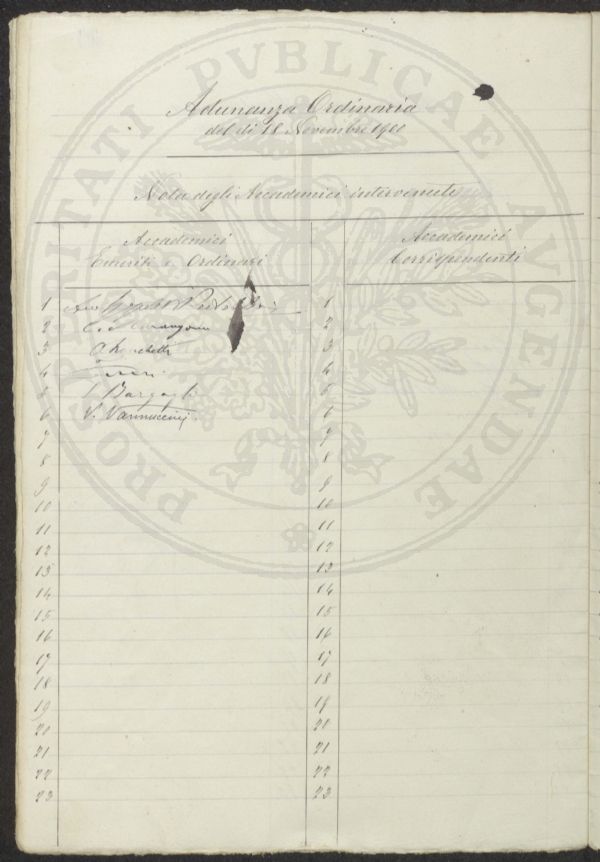 PROSPERITATI PVBLICAE AVGENDAE
Adunanza Ordinaria
del dì 18 Novembre
Nota degli Accademici intervenuti
Accademici
Emeriti e Ordinari
Accademici
Corrispondenti
1
1
2
2
3
3
4
4
5 Bargagli
5
6 V. Vannuccini
6
7
7
8
8
9
9
10
10
11
11
12
12
13
13
14
14
15
15
16
16
17
17
18
18
19
19
20
20
21
21
22
22
23
23